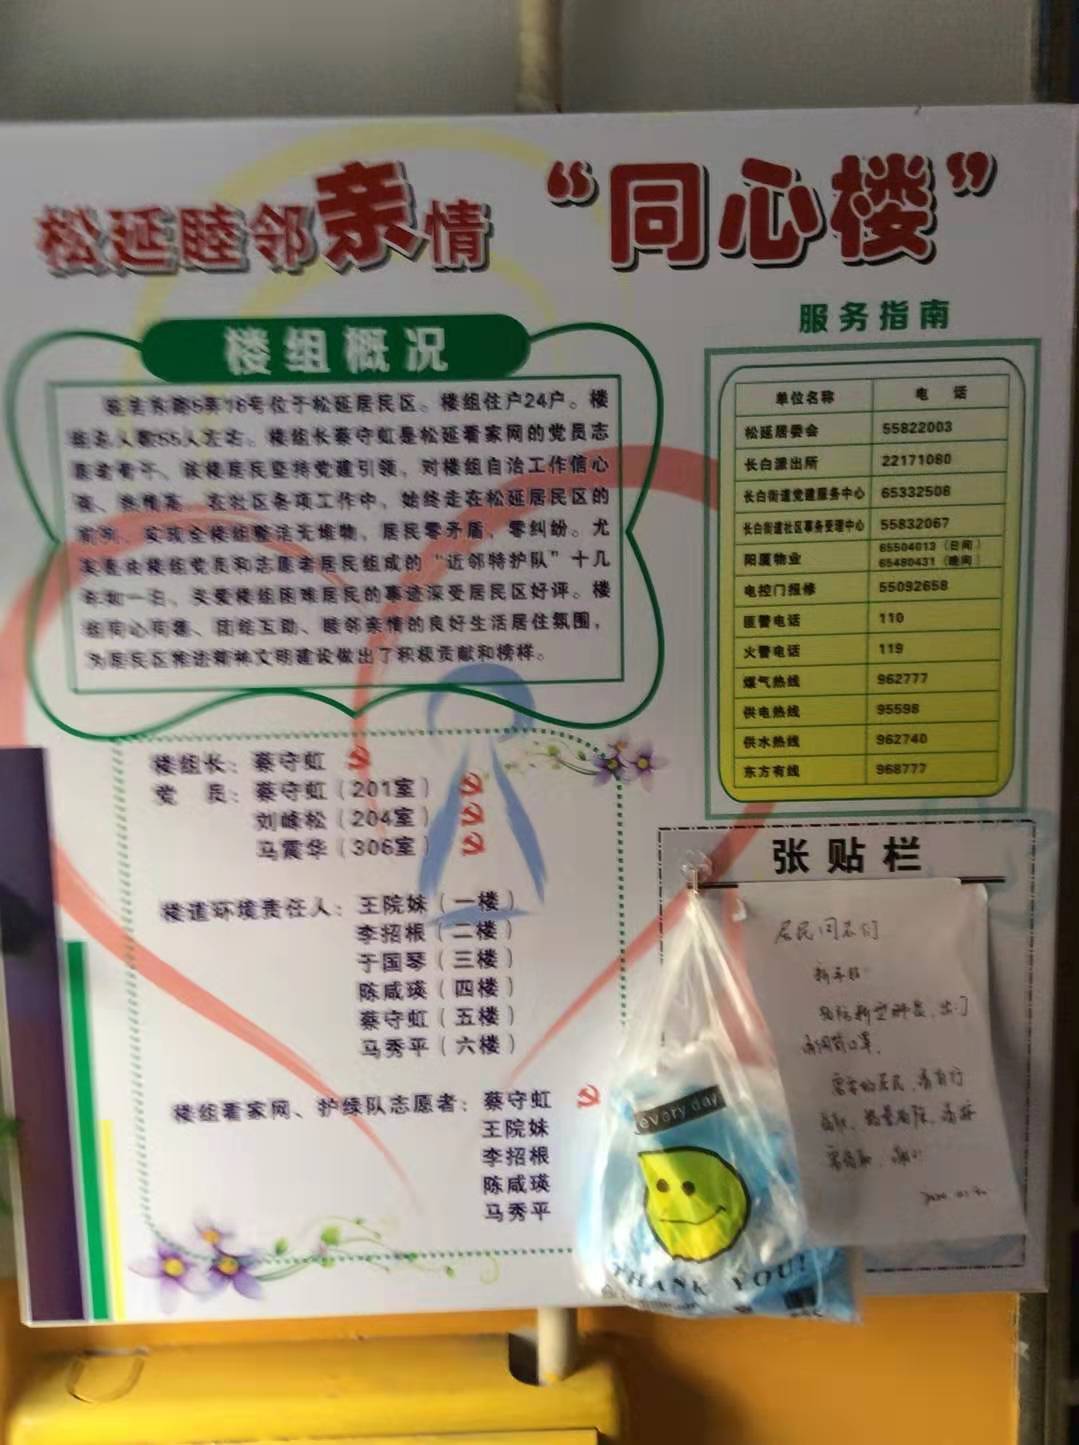 松延睦邻亲情 “同心楼”
楼组概况
5弄16号位于松延居民区。楼组住户24户。楼
组总人数55人左右。楼组长蔡守虹是松延看家网的党员志
愿者骨干、该楼居民坚持党建引领，对楼组自治工作信心
强、热情高，在社区各项工作中，始终走在松延居民区的
前列，实现全楼组整洁无堆物，居民零矛盾，零纠纷。尤
其是由楼组党员和志愿者居民组成的“近邻特护队”十几
年如一日、关爱楼组困难居民的事迹深受居民区好评。楼
组同心同德、团结互助、睦邻亲情的良好生活居住氛围，
为居民区推进精神文明建设做出了积极贡献和榜样。
服务指南
单位名称 电 话
松延居委会 55822003
长白派出所 22171080
长白街道党建服务中心 65332506
长白街道社区事务受理中心 55832067
阳厦物业 65504013（日间） 65480431（晚间）
电控门报修 55092658
匪警电话 110
火警电话 119
煤气热线 962777
供电热线 95598
供水热线 962740
东方有线 968777
楼组长：蔡守虹
党 员：蔡守虹（201室）
刘峰松（204室）
马震华（306室）
楼道环境责任人：王院妹（一楼）
李招根（二楼）
于国琴（三楼）
陈咸瑛（四楼）
蔡守虹（五楼）
马秀平（六楼）
楼组看家网、护绿队志愿者：蔡守虹
王院妹
李招根
陈咸瑛
马秀平
张贴栏
居民同志们
新年好
出门
口罩，
需要的居民，请自行
every day
THANK YOU!